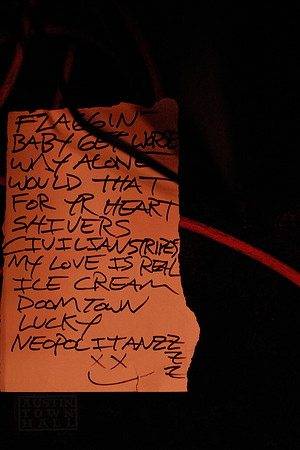 FLAGGIN
BABY GET WORSE
WHY ALONE
WOULD THAT
FOR YR HEART
SHIVERS
CIVILIAN STRIPES
MY LOVE IS REAL
ICE CREAM
DOOMTOWN
LUCKY
NEOPOLITANZZ
Z
Z
XX
AUSTIN
TOWN
HALL